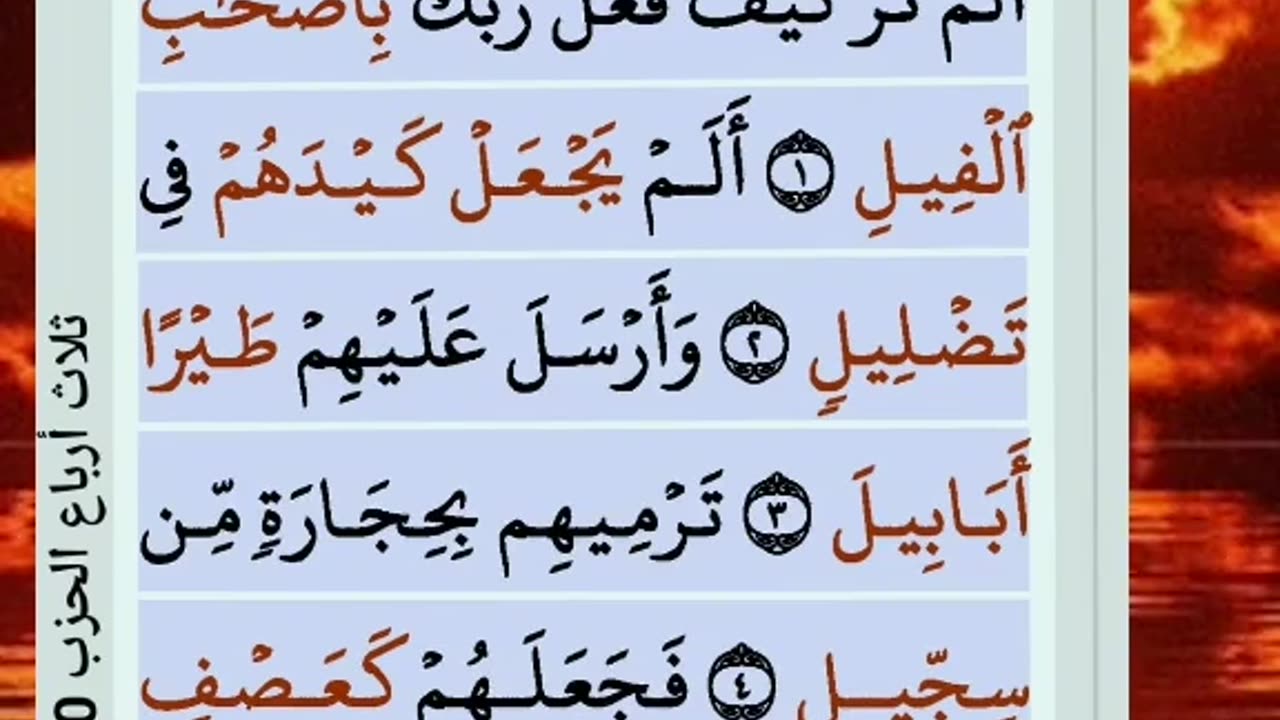 ألم تر كيف فعل ربك بِأَصْحَٰبِ
ٱلْفِيلِ ١ أَلَمْ يَجْعَلْ كَيْدَهُمْ فِي
تَضْلِيلٍ ٢ وَأَرْسَلَ عَلَيْهِمْ طَيْرًا
أَبَابِيلَ ٣ تَرْمِيهِم بِحِجَارَةٍ مِّن
سِجِّيلٍ ٤ فَجَعَلَهُمْ كَعَصْفٍ
ثلاث أرباع الحزب